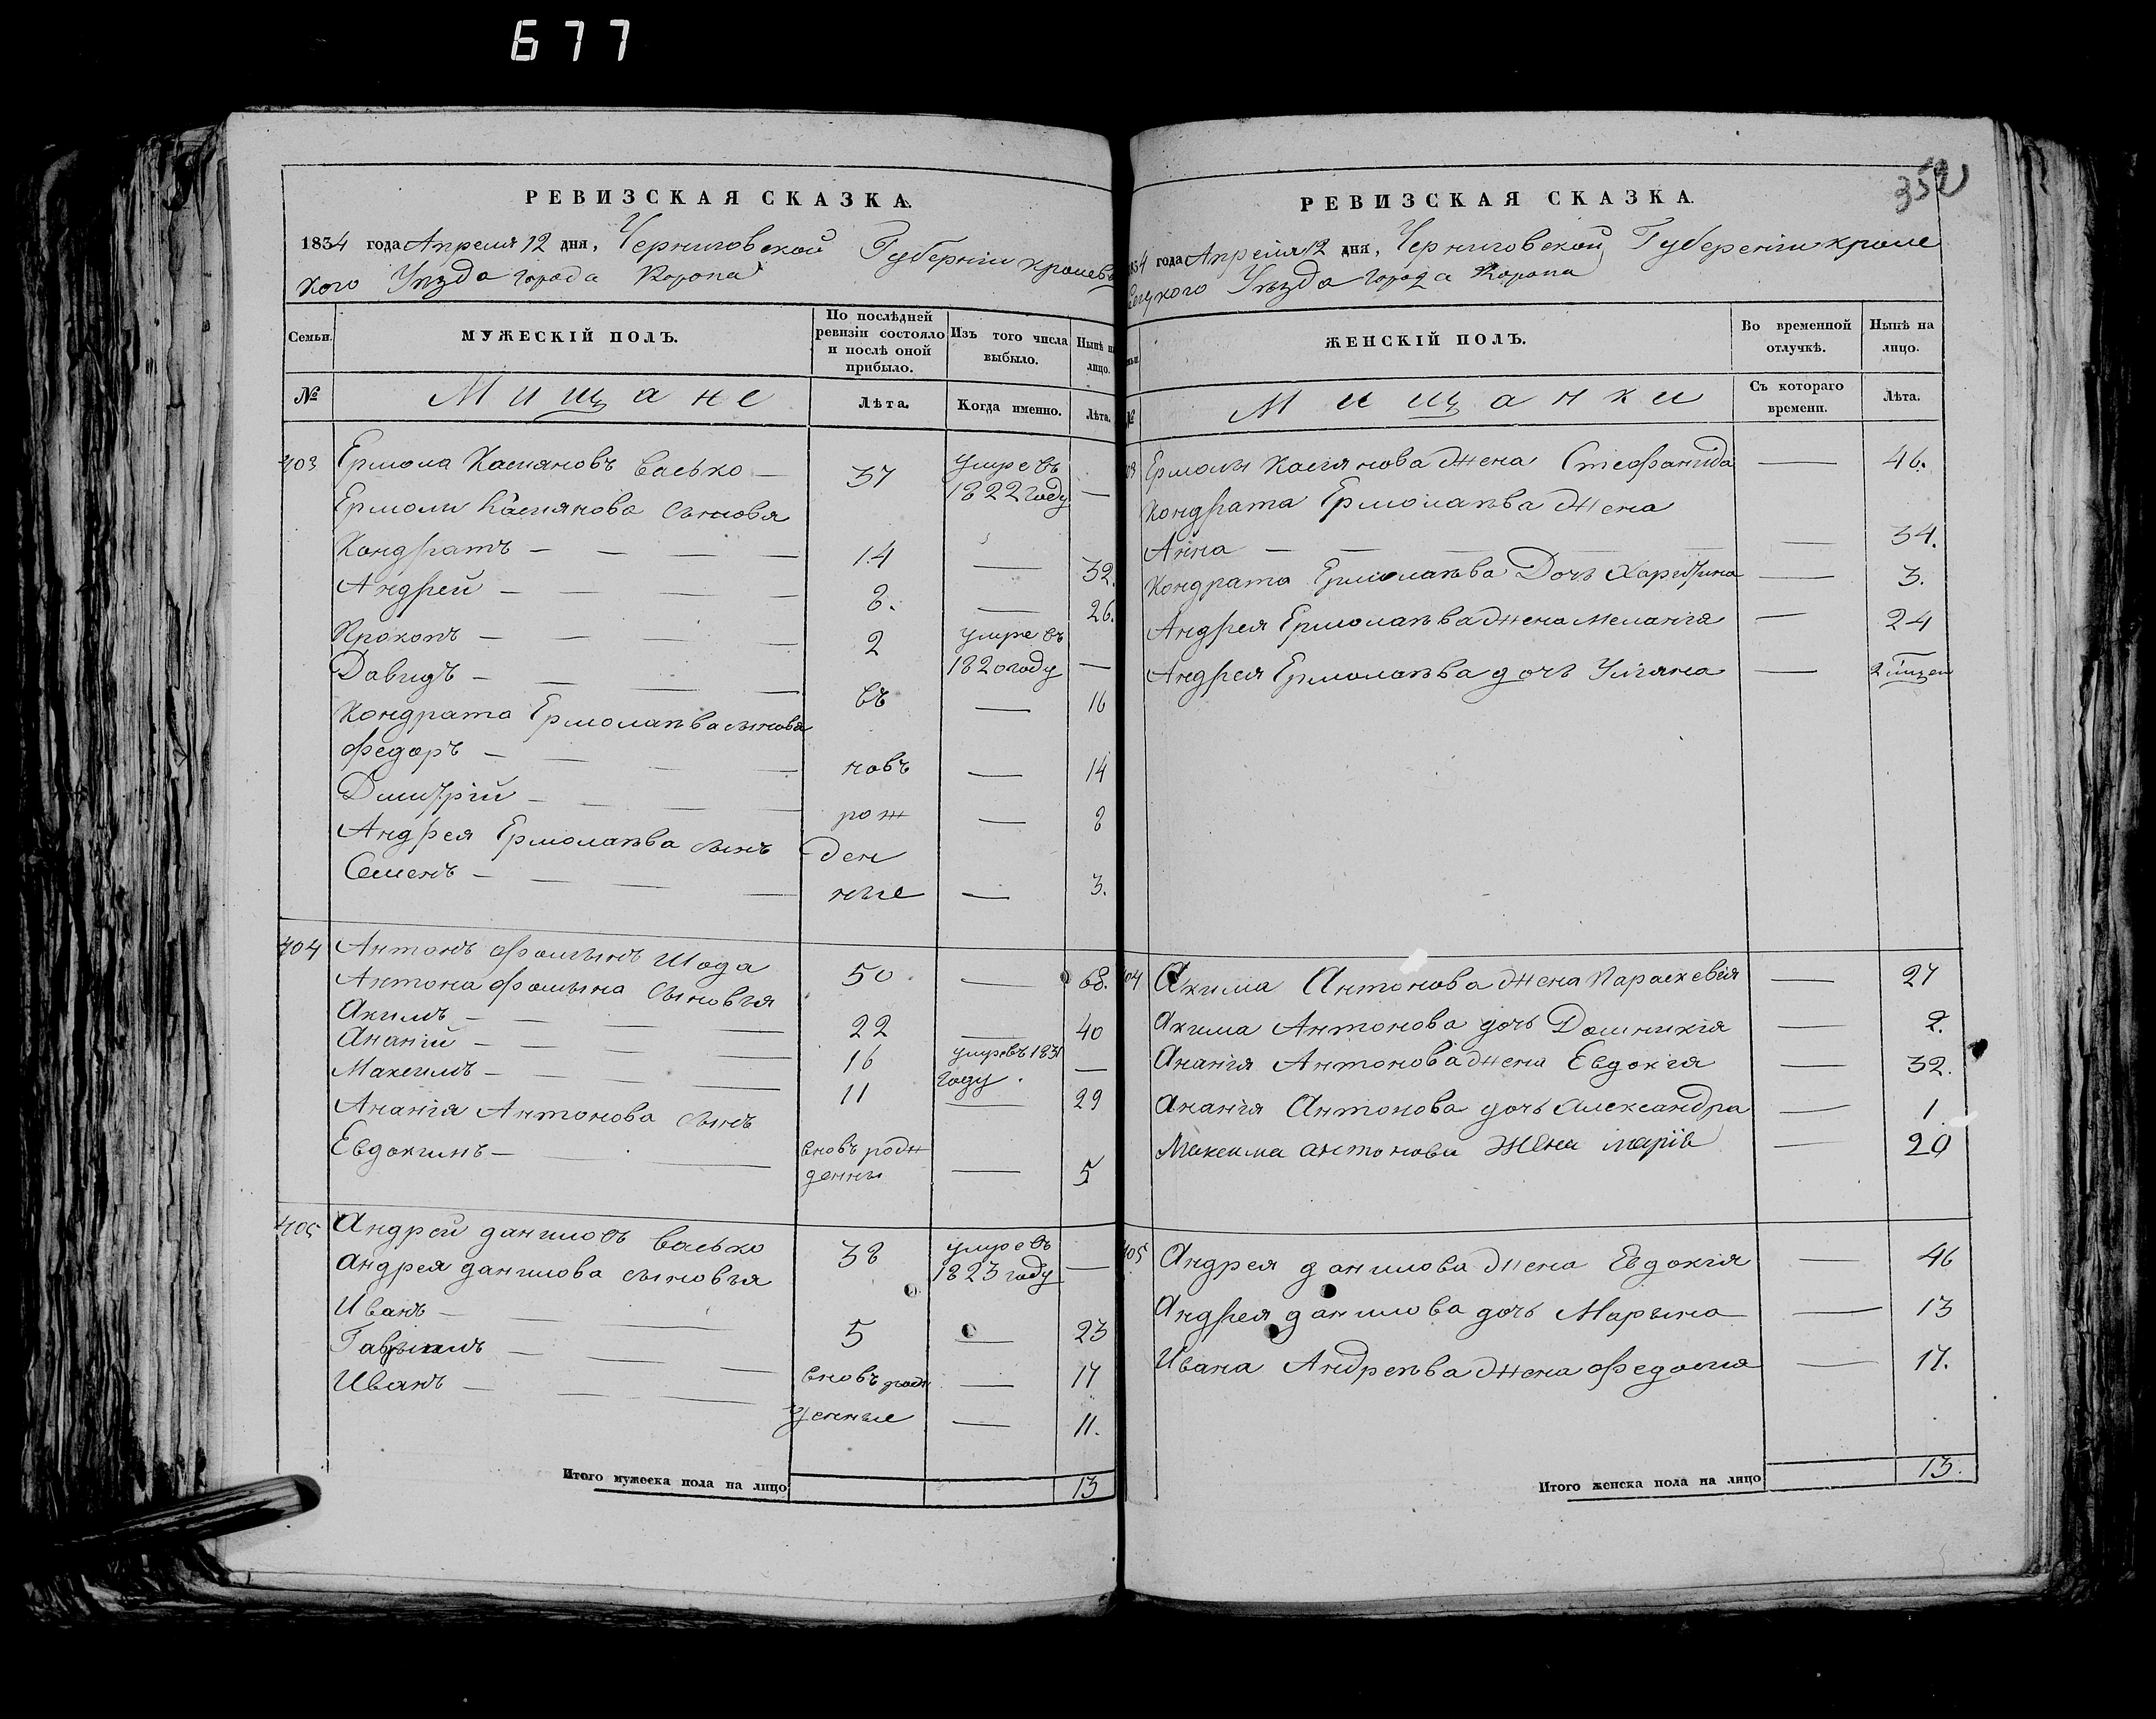 677
РЕВИЗСКАЯ СКАЗКА.
1834 года Апреля 12 дня, Черниговской Губерніи кролевъ
кого Уѣзда города Коропа
Семьи.
МУЖЕСКІЙ ПОЛЪ.
По послѣдней ревизіи состояло и послѣ оной прибыло.
Изъ того числа выбыло.
Нынѣ на лицо.
№
Мищане
Лѣта.
Когда именно.
Лѣта.
403 Ермола Касияновъ Васько — 37 умре въ 1822 году —
Ермоли Касиянова сыновя
Кондратъ — 14 — 32.
Андрей — 8. — 26.
Прокопъ — 2 умре въ 1820 году —
Давидъ — въ — 16
Кондрата Ермолаѣва сыновя
Федоръ — новъ — 14
Димитрій — рож — 8
Андрея Ермолаѣва сынъ ден
Семенъ — ные — 3.
404 Антонъ Фомынъ Шода 50 — 68.
Антона Фомына сыновія
Акимъ — 22 — 40
Ананій — 16 умре въ 1831 году —
Максимъ — 11 — 29
Ананія Антонова сынъ
Евдокимъ — вновъ рожденны — 5
405 Андрей Даниловъ Васько 38 умре въ 1823 году —
Андрея Данилова сыновія
Иванъ — 5 — 23
Гаврыилъ — вновъ рож — 17
Иванъ — денные — 11.
Итого мужеска пола на лицо 13
352
РЕВИЗСКАЯ СКАЗКА.
1834 года Апреля 12 дня, Черниговской Губереніи кроле
вецкого Уѣзда города Коропа
ЖЕНСКІЙ ПОЛЪ.
Во временной отлучкѣ.
Нынѣ на лицо.
№
Мищанки
Съ котораго времени.
Лѣта.
Ермоли Касиянова жена Стефанида — 46.
Кондрата Ермолаѣва жена
Анна — 34.
Кондрата Ермолаѣва Дочь Харитина — 3.
Андрея Ермолаѣва жена Меланія — 24
Андрея Ермолаѣва дочь Уліяна — 2
404 Акима Антонова жена Параскевія — 27
Акима Антонова дочь Домникія — 2.
Ананія Антонова жена Евдокія — 32.
Ананія Антонова дочь Александра — 1
Максима Антонова жена Марія — 20
405 Андрея Данилова жена Евдокія — 46
Андрея Данилова дочь Марына — 13
Ивана Андреѣва жена Федосия — 17.
Итого женска пола на лицо 13.